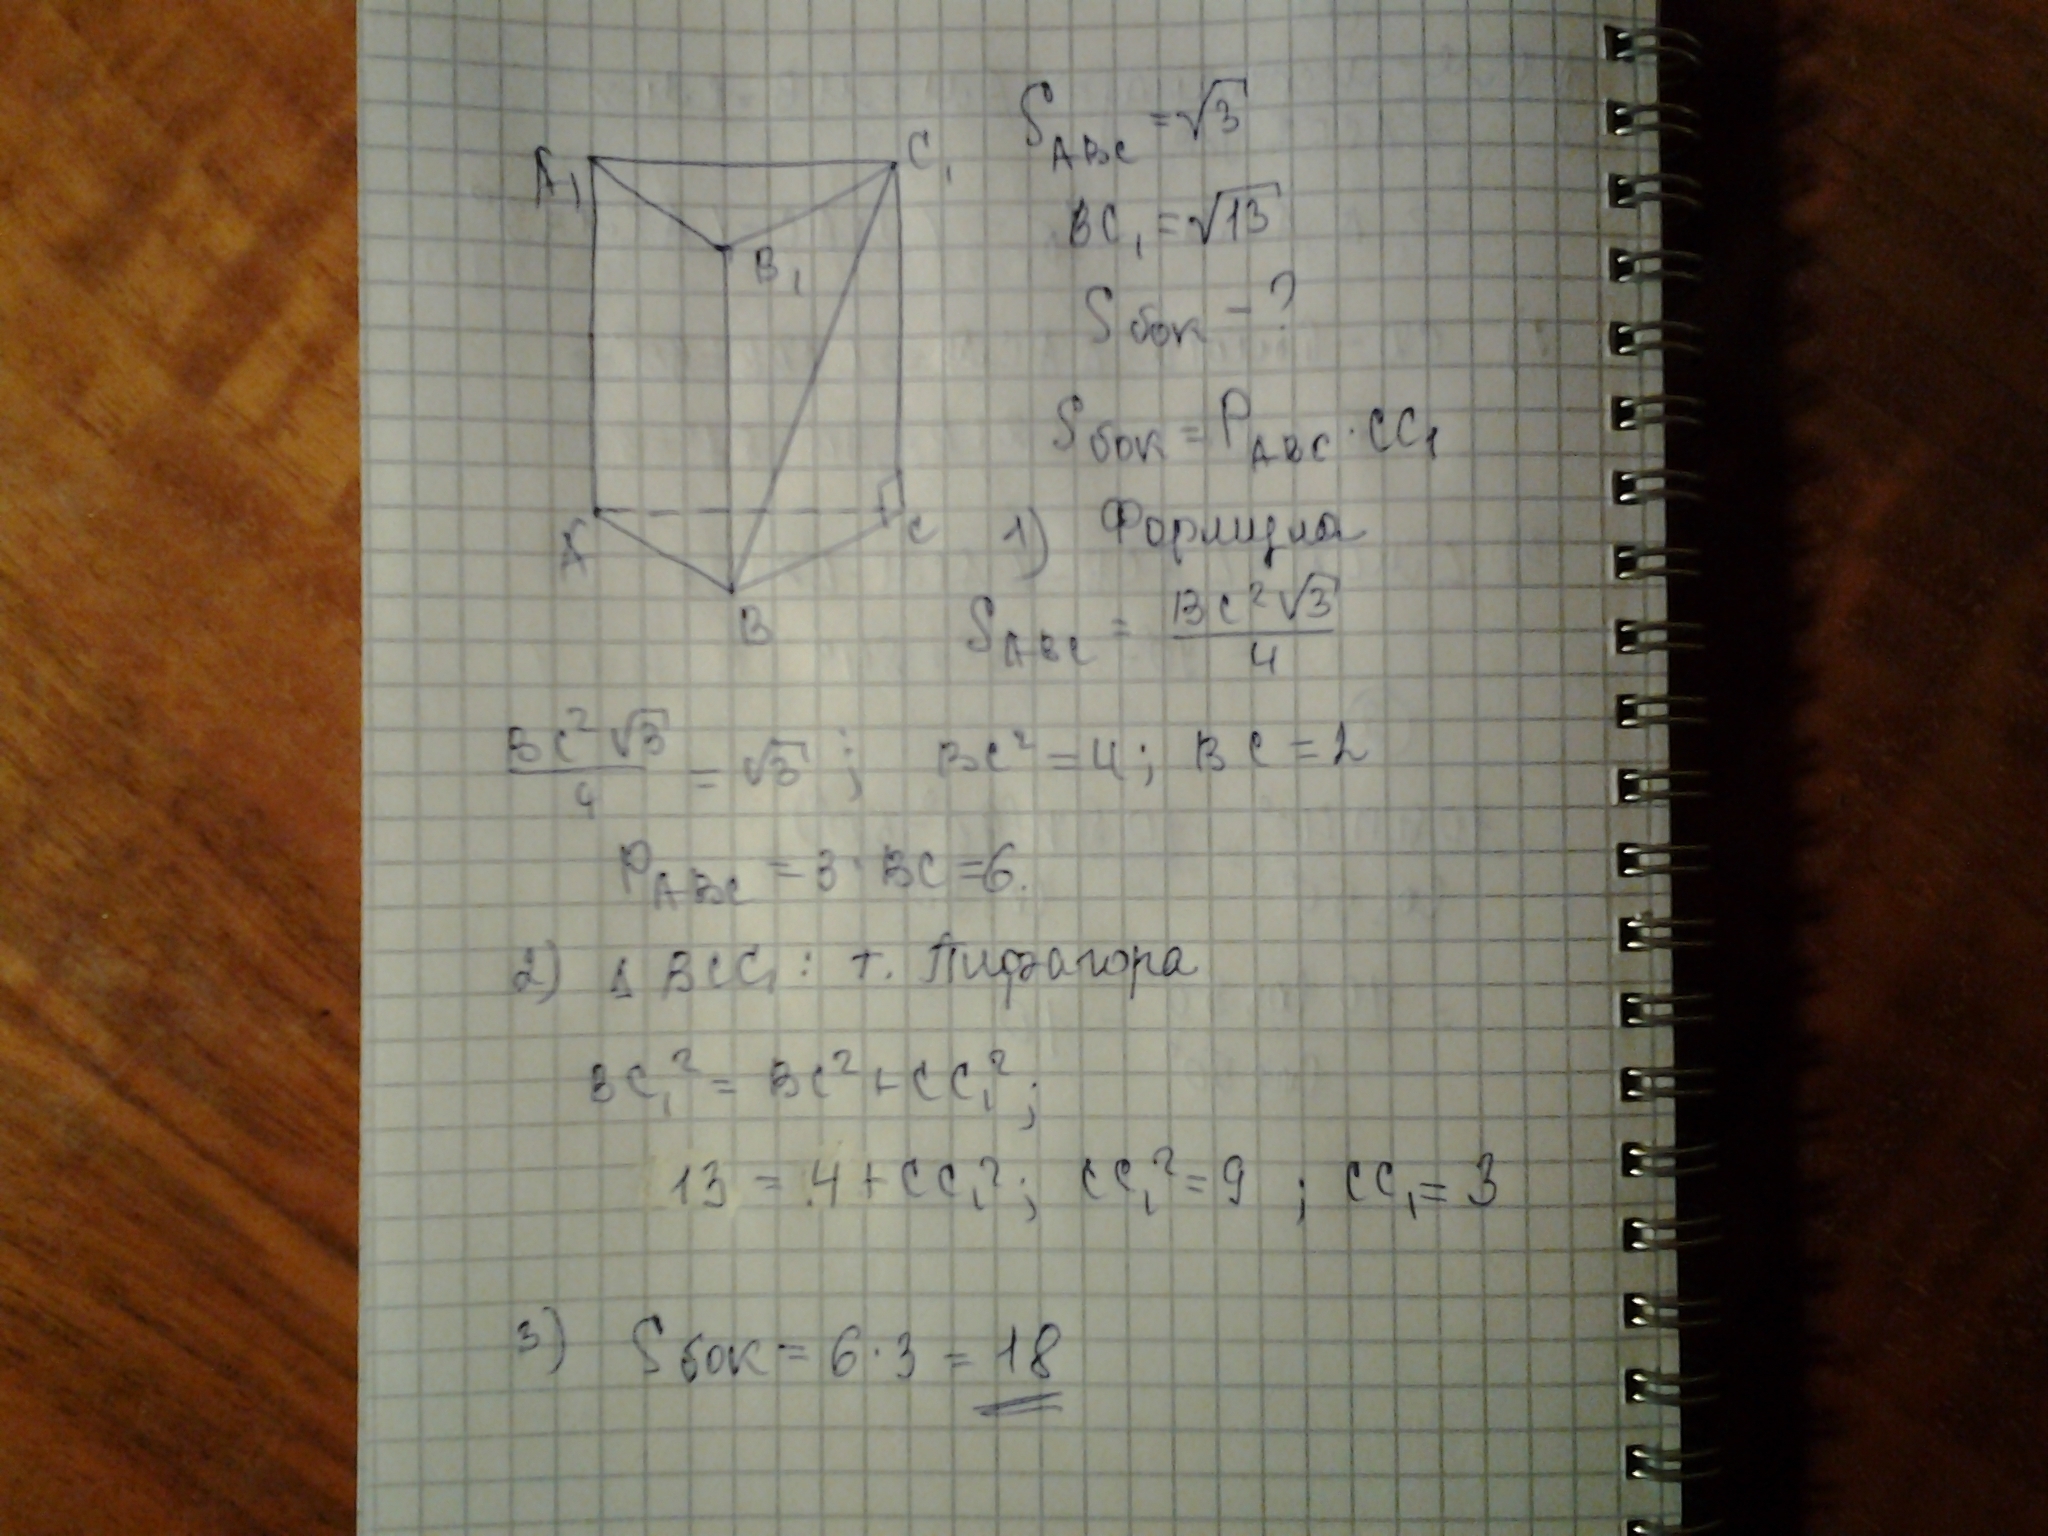 A₁
C₁
B₁
A
C
B
S_ABC = √3
BC₁ = √13
Sбок - ?
Sбок = P_ABC · CC₁
1) Формула
S_ABC = BC²√3 / 4
BC²√3 / 4 = √3 ; BC² = 4 ; BC = 2
P_ABC = 3 · BC = 6.
2) Δ BCC₁ : т. Пифагора
BC₁² = BC² + CC₁² ;
13 = 4 + CC₁² ; CC₁² = 9 ; CC₁ = 3
3) Sбок = 6 · 3 = 18